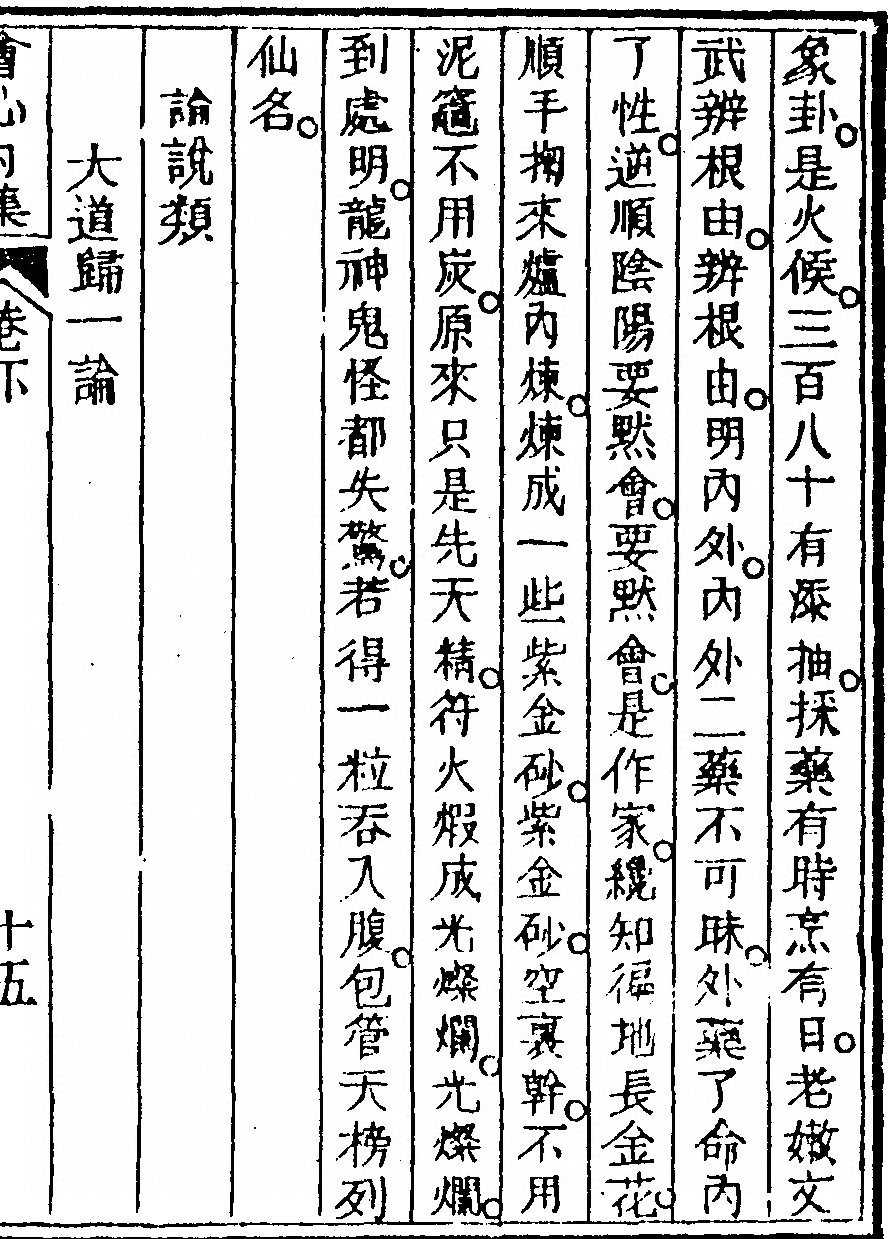 象卦。是火候。三百八十有添抽。採藥有時烹有日。老嫩文
武辨根由。辨根由。明內外。內外二藥不可昧。外藥了命內
了性。逆順陰陽要默會。要默會。是作家。纔知徧地長金花。
順手掬來爐內煉。煉成一些紫金砂。紫金砂。空裏幹。不用
泥竈不用炭。原來只是先天精。符火煅成光燦爛。光燦爛。
到處明。龍神鬼怪都失驚。若得一粒吞入腹。包管天榜列
仙名。
論說類
大道歸一論
會心內集
卷下
十五